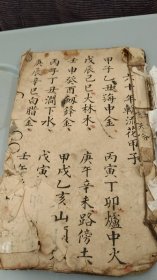 六十年轉流花甲子
甲子乙丑海中金
丙寅丁卯爐中火
戊辰己巳大林木
庚午辛未路傍土
壬申癸酉劍鋒金
甲戌乙亥山
丙子丁丑澗下水
戊寅
庚辰辛巳白腊金
壬